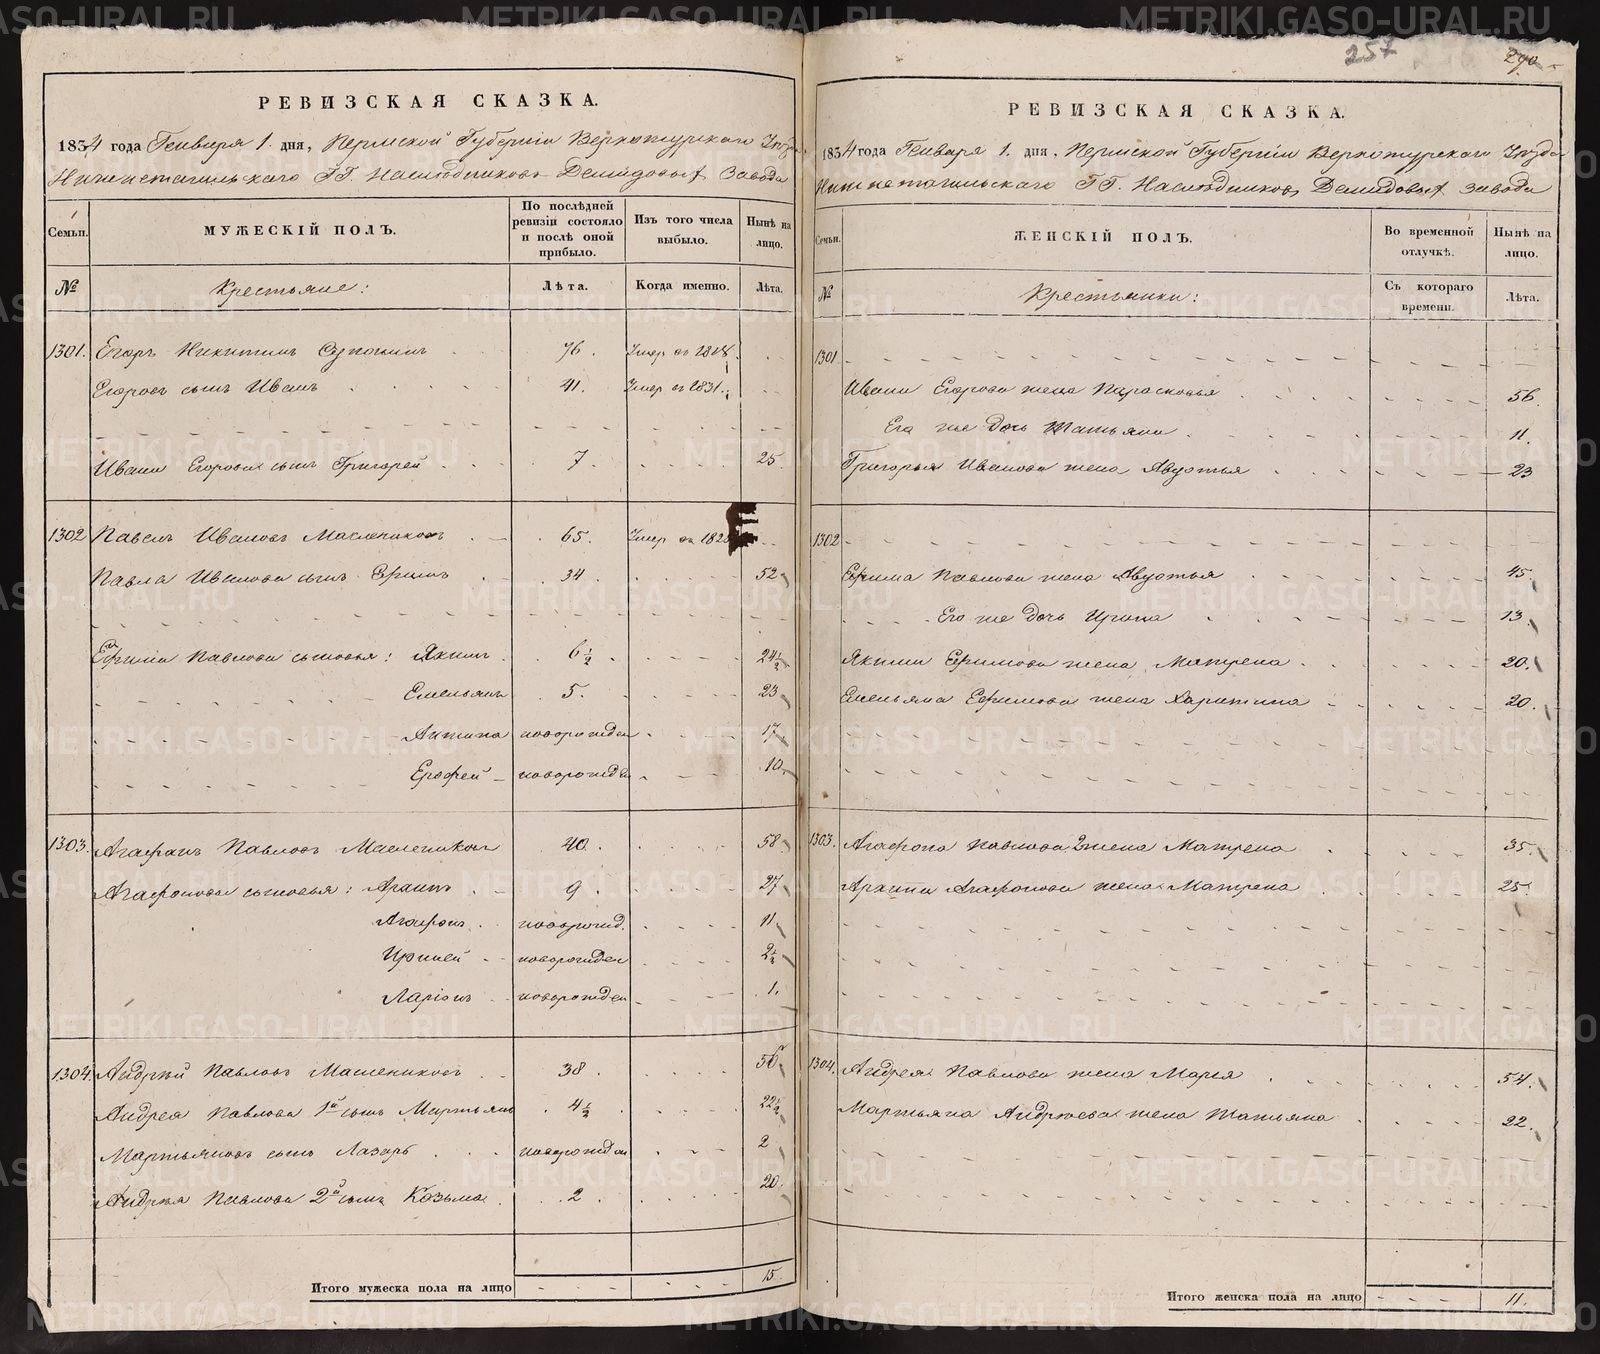 257
290
РЕВИЗСКАЯ СКАЗКА.
1834 года Генваря 1. дня, Пермской Губерніи Верхотурскаго Уѣзда
Нижнетагильскаго ГГ. Наслѣдниковъ Демидовыхъ завода
Семьи.
МУЖЕСКІЙ ПОЛЪ.
По послѣдней ревизіи состояло и послѣ оной прибыло.
Изъ того числа выбыло.
Нынѣ на лицо.
№
Крестьяне:
Лѣта.
Когда именно.
Лѣта.
1301. Егоръ Никитинъ 76. Умер въ 1828.
Егоровъ сынъ Иванъ 41. Умер въ 1831.
Ивана Егорова сынъ Григорей 7. 25.
1302 Павелъ Ивановъ Маслениковъ 65. Умер въ 182
Павла Иванова сынъ Ефимъ 34. 52
Ефима Павлова сыновья: Якимъ 6½ 24½
Емельянъ 5. 23
Антипа новорожден 17
Ерофей новорожден 10.
1303. Агафонъ Павловъ Маслениковъ 40. 58
Агафоновы сыновья: 9. 27
Агафонъ новорожд. 11
новорожден 2½
Ларіонъ новорожден 1.
1304. Андрѣй Павловъ Маслениковъ 38. 56.
Андрея Павлова 1й сынъ Мартьянъ 4½ 22½
Мартьяновъ сынъ Лазарь новорожден 2
Андрѣя Павлова 2й сынъ Козьма. 2. 20.
Итого мужеска пола на лицо 15.
РЕВИЗСКАЯ СКАЗКА.
1834 года Генваря 1. дня, Пермской Губерніи Верхотурскаго Уѣзда
Нижнетагильскаго ГГ. Наслѣдниковъ Демидовыхъ завода
Семьи.
ЖЕНСКІЙ ПОЛЪ.
Во временной отлучкѣ.
Нынѣ на лицо.
№
Крестьянки:
Съ котораго времени.
Лѣта.
1301
Ивана Егорова жена Парасковья 56.
Его же дочь Татьяна 11.
Григорья Иванова жена Авдотья 23
1302
Ефима Павлова жена Авдотья 45.
Его же дочь Ирина 13.
Якима Ефимова жена Матрена 20.
Емельяна Ефимова жена Харитина 20.
1303. Агафона Павлова 2 жена Матрена 35.
Агафонова жена Матрена 25.
1304. Андрея Павлова жена Марья 54.
Мартьяна Андрѣева жена Татьяна 22.
Итого женска пола на лицо 11.
METRIKI.GASO-URAL.RU